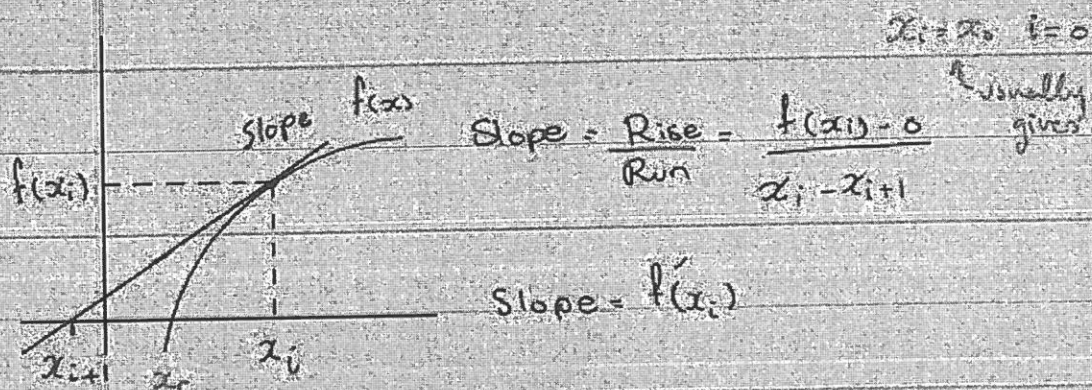 xᵢ = x₀ i = 0
usually
given
f(x)
slope
Slope = Rise/Run = (f(xᵢ) - 0)/(xᵢ - xᵢ₊₁)
f(xᵢ)
Slope = f′(xᵢ)
xᵢ₊₁ xᵣ xᵢ